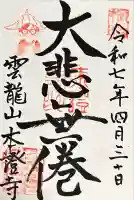 令和七年四月三十日
大悲無倦
雲龍山本證寺